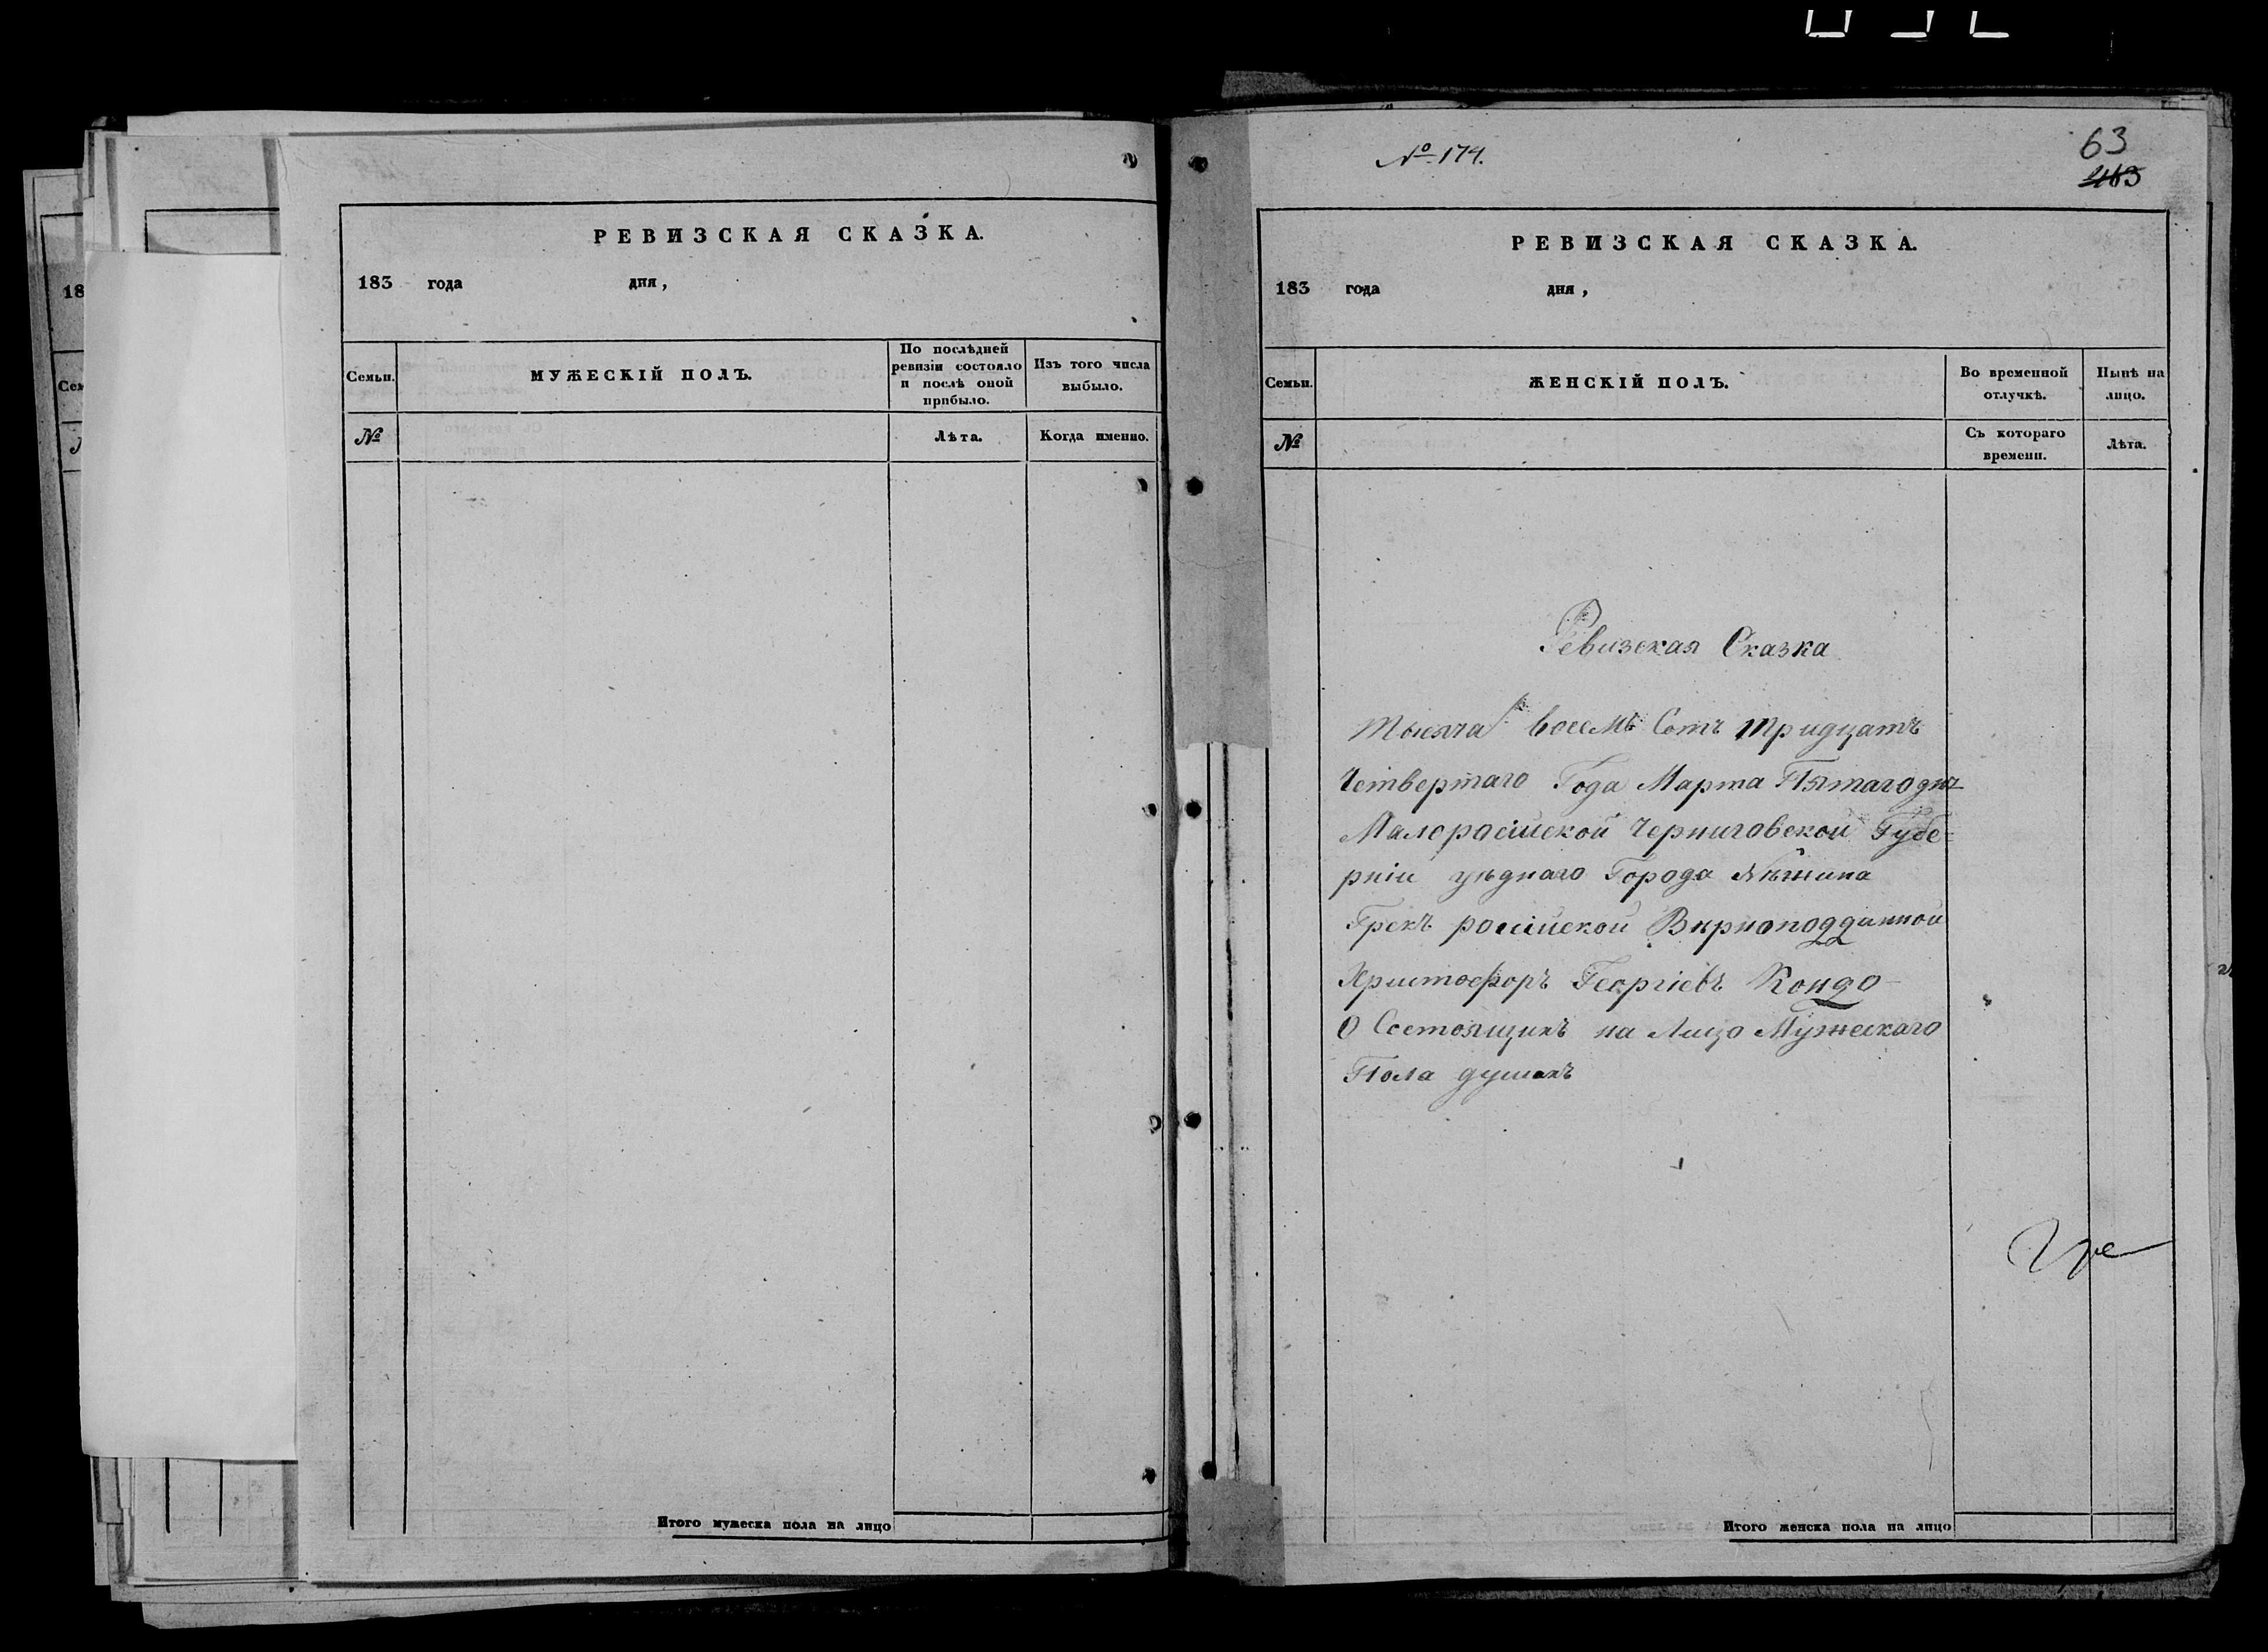 РЕВИЗСКАЯ СКАЗКА.
183 года дня,
Семьи.
МУЖЕСКІЙ ПОЛЪ.
По послѣдней
ревизіи состояло
и послѣ оной
прибыло.
Изъ того числа
выбыло.
№
Лѣта.
Когда именно.
Итого мужеска пола на лицо
№ 174.
63
РЕВИЗСКАЯ СКАЗКА.
183 года дня,
Семьи.
ЖЕНСКІЙ ПОЛЪ.
Во временной
отлучкѣ.
Нынѣ на
лицо.
№
Съ котораго
времени.
Лѣта.
Ревизская Сказка
тысяча восемь Сотъ тридцатъ
Четвертаго Года Марта Пятаго дня
Малоросійской Черниговской Губе-
рніи уѣднаго Города Нѣжина
Грекъ россійской Вѣрноподданной
Христофоръ Георгіевъ Кондо
О Состоящихъ на Лицо Мужескаго
Пола душахъ
Итого женска пола на лицо